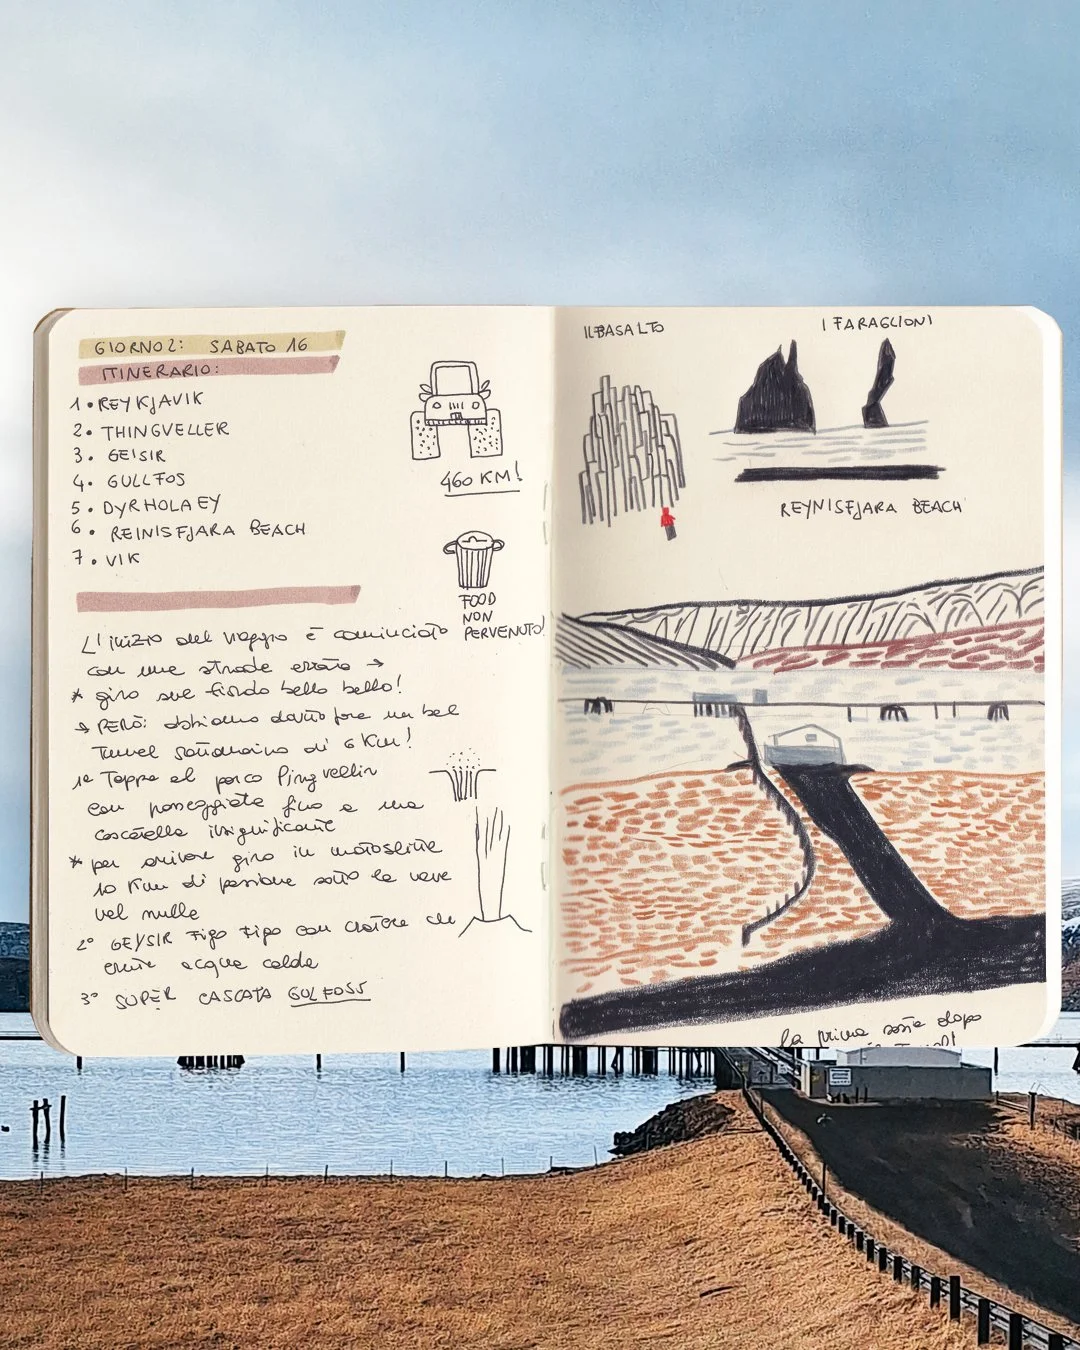 GIORNO 2: SABATO 16
ITINERARIO:
1 • REYKJAVIK
2 • THINGVELLER
3 • GEISIR
4 • GULLFOS
5 • DYRHOLAEY
6 • REINISFJARA BEACH
7 • VIK
460 KM!
FOOD
NON
PERVENUTO!
L'inizio del viaggio è cominciato
con una strada errata →
* giro sul fiordo bello bello!
→ PERÒ: abbiamo dovuto fare un bel
Tunnel sottomarino di 6 Km!
1° Tappa al parco
con passeggiata fino a una
cascatella insignificante
* per arrivare giro in motoslitte
10 Km di passione sotto la neve
nel nulla
2° GEYSIR Figo Figo con cratere che
erutta acqua calda
3° SUPER CASCATA GULFOSS
IL BASALTO
I FARAGLIONI
REYNISFJARA BEACH
la prima sosta dopo